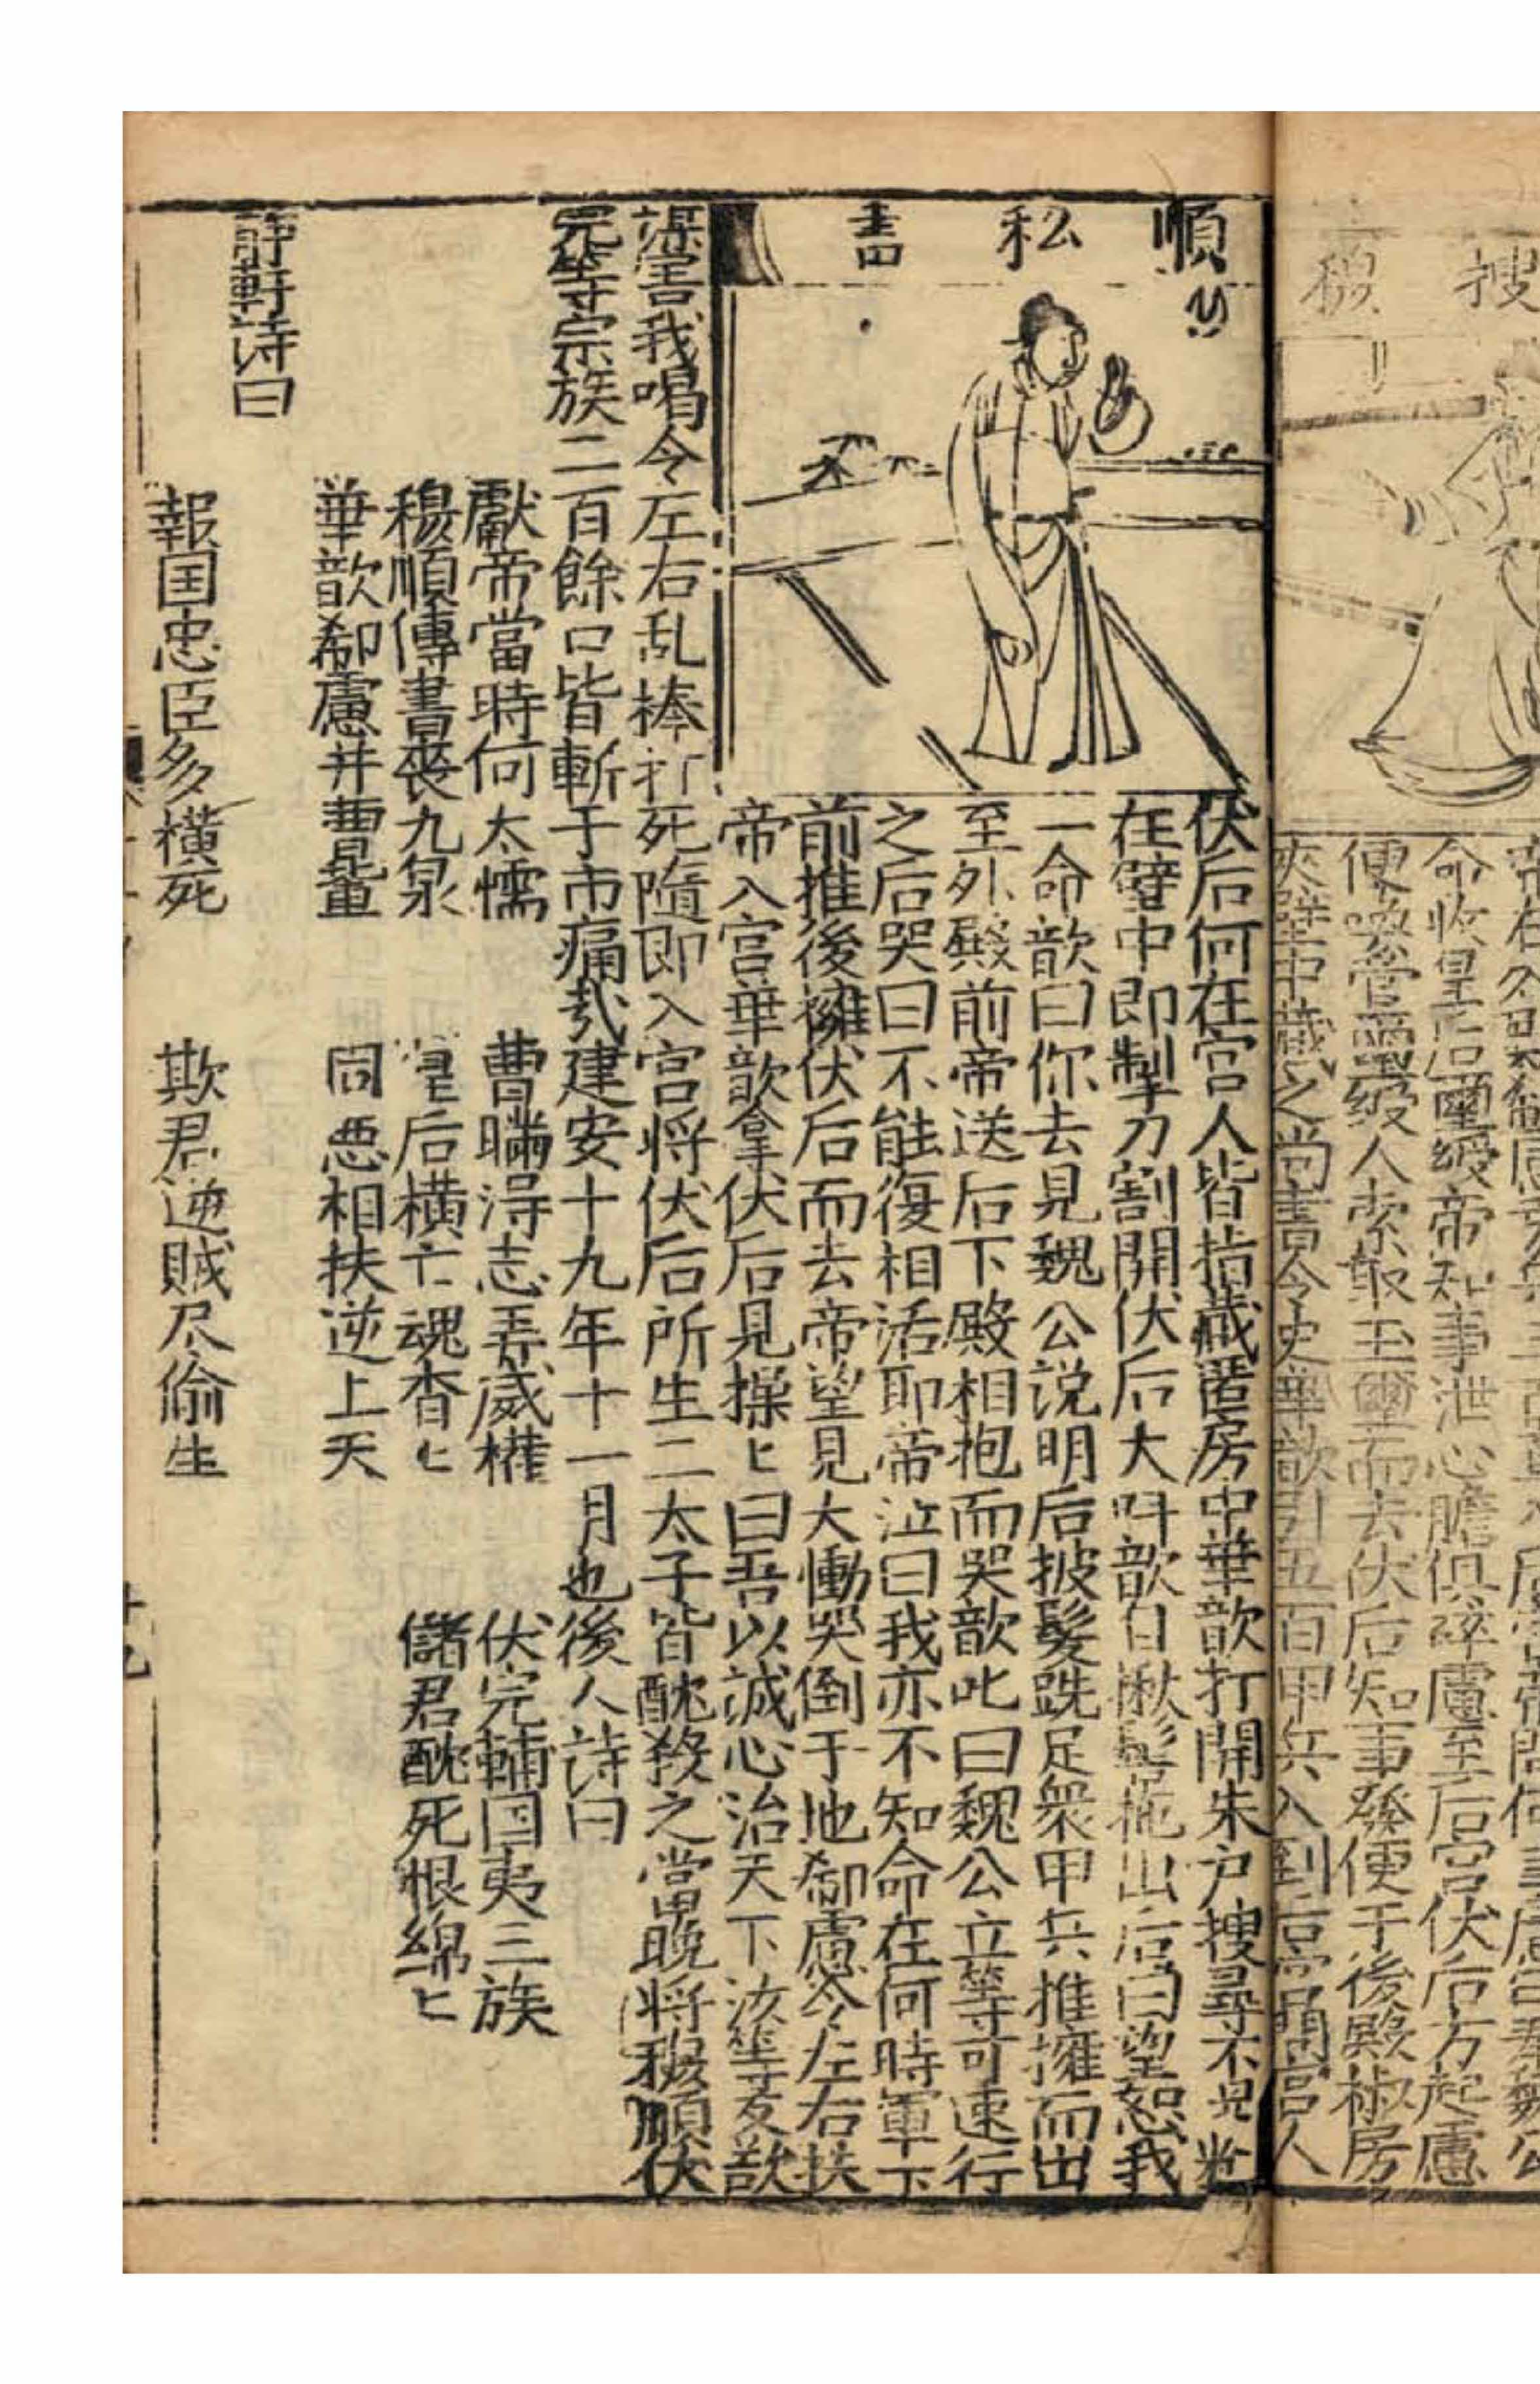 搜
穆
順
私
書
命收皇后璽綬帝知事泄心膽俱碎慮至后宮伏后方起慮
便喚管璽綬人索取玉璽而去伏后知事發便于後殿椒房
夾壁中藏之尚書令史華歆引五百甲兵入到后宮問宮人
伏后何在宮人皆指藏匿房中華歆打開朱户搜尋不見料
在壁中即掣刀割開伏后大呌歆自揪髻拖出后曰望恕我
一命歆曰你去見魏公説明后披髮跣足衆甲兵推擁而出
至外殿前帝送后下殿相抱而哭歆叱曰魏公立等可速行
之后哭曰不能復相活耶帝泣曰我亦不知命在何時軍下
前推後擁伏后而去帝望見大慟哭倒于地郗慮令左右扶
帝入宫華歆拿伏后見操匕曰吾以誠心治天下汝等反欲
謀害我喝令左右乱棒打死隨即入宫将伏后所生二太子皆酖殺之當晚将穆順伏
完等宗族二百餘口皆斬于市痛㦲建安十九年十一月也後人詩曰
獻帝當時何太懦 曹瞞淂志弄威權 伏完輔国夷三族
穆順傳書喪九泉 皇后横亡魂杳匕 儲君酖死恨綿匕
華歆郗慮并曹量 同惡相扶逆上天
静軒詩曰
報国忠臣多横死 欺君逆賊尽偷生
十九